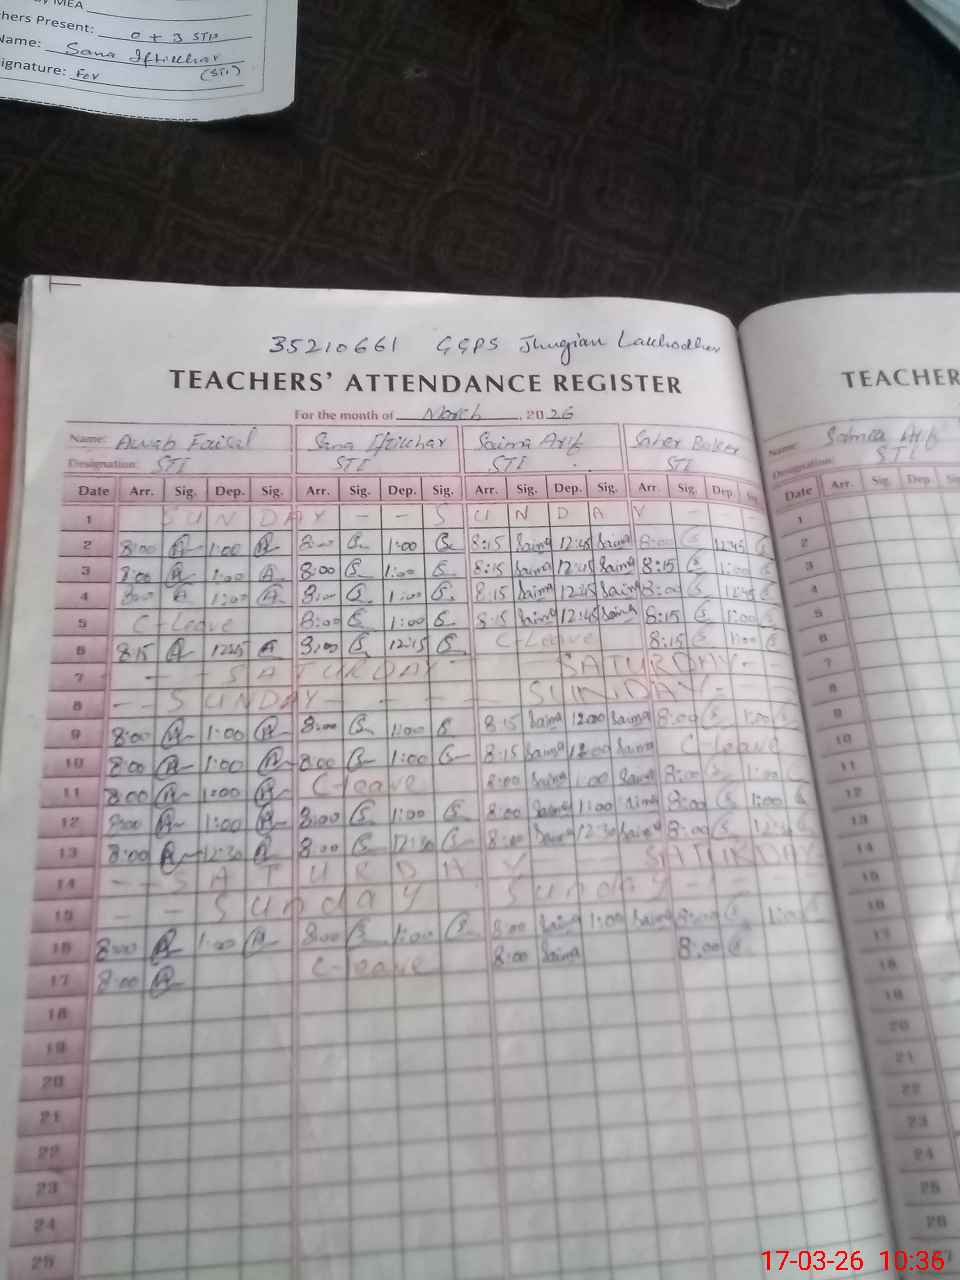 by MEA
chers Present: 0 + 3 STI
Name: Sana Iftikhar
ignature: For (STI)
35210661 GGPS Jhugian
TEACHERS' ATTENDANCE REGISTER
For the month of March, 2026
Name: Faisal Sana Iftikhar Saima Arif Saher
Designation: STI STI STI STI
Date Arr. Sig. Dep. Sig. Arr. Sig. Dep. Sig. Arr. Sig. Dep. Sig. Arr. Sig. Dep. Sig.
1 SUNDAY - - SUNDAY - - -
2 8:00 A 1:00 A 8:00 S 1:00 S 8:15 Saima 12:45 Saima 8:00 S 12:45 S
3 8:00 A 1:00 A 8:00 S 1:00 S 8:15 Saima 12:45 Saima 8:15 S 1:00 S
4 8:00 A 1:00 A 8:00 S 1:00 S 8:15 Saima 12:45 Saima 8:00 S 12:45 S
5 C-Leave 8:00 S 1:00 S 8:15 Saima 12:45 Saima 8:15 S 1:00 S
6 8:15 A 12:15 A 8:00 S 12:15 S C-Leave 8:15 S 1:00 S
7 - - - SATURDAY - - SATURDAY - -
8 - - SUNDAY - - - - - SUNDAY - - -
9 8:00 A 1:00 A 8:00 S 1:00 S 8:15 Saima 12:00 Saima 8:00 S 1:00 S
10 8:00 A 1:00 A 8:00 S 1:00 S 8:15 Saima 12:00 Saima C-leave
11 8:00 A 1:00 A C-leave 8:00 Saima 1:00 Saima 8:00 S 1:00
12 8:00 A 1:00 A 8:00 S 1:00 S 8:00 Saima 1:00 Saima 8:00 S 1:00 S
13 8:00 A 12:30 A 8:00 S 12:30 S 8:00 Saima 12:30 Saima 8:00 S
14 - - SATURDAY - - - SATURDAY
15 - - Sunday Sunday - - - -
16 8:00 A 1:00 A 8:00 S 1:00 S 8:00 Saima 1:00 Saima 8:00 S 1:00 S
17 8:00 A C-leave 8:00 Saima 8:00 S
18
19
20
21
22
23
24
25
TEACHER
Name: Arif
Designation: STI
Date Arr. Sig. Dep.
1
2
3
4
5
6
7
8
9
10
11
12
13
14
15
16
17
18
19
20
21
22
23
24
25
26
17-03-26 10:36